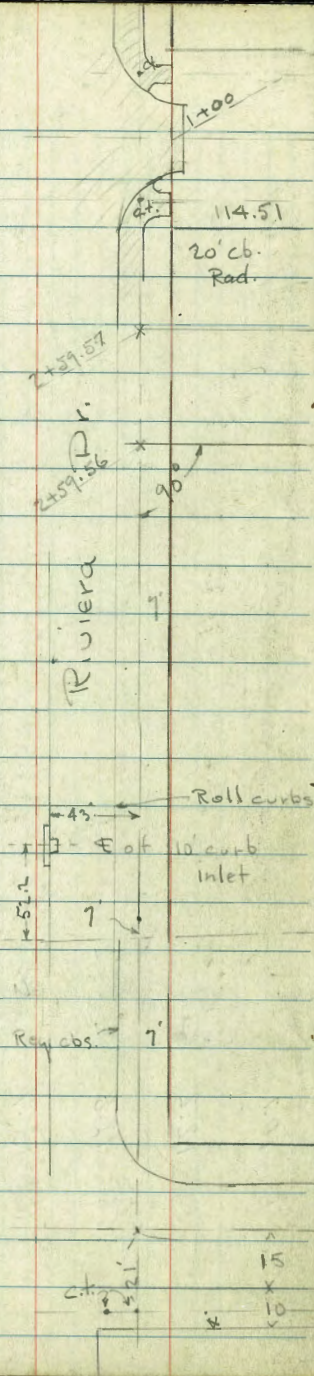 1+00
c.t.
114.51
20' cb.
Rad.
2+59.57
2+59.56
90°
Riviera Dr.
7'
Roll curbs
43'
℄ of 10' curb
inlet
52.2
7'
Reg. cbs.
7'
21'
c.t.
15
10